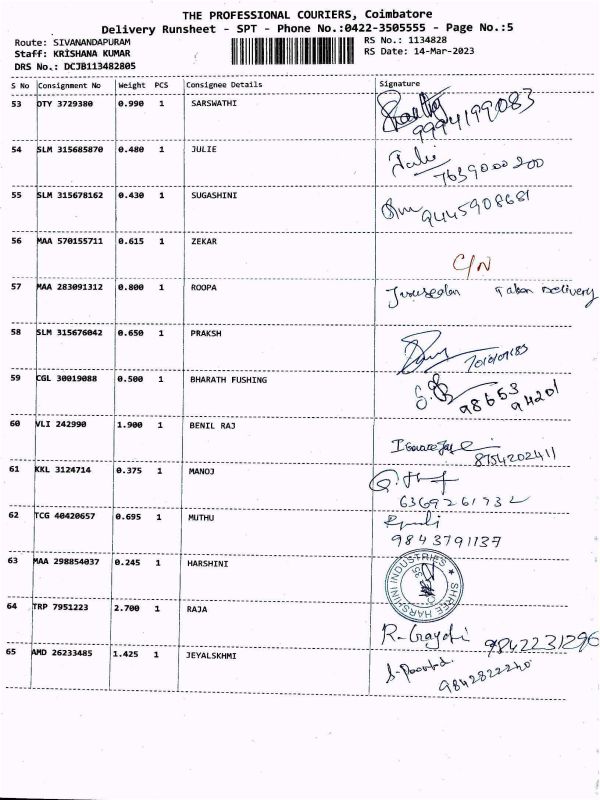 THE PROFESSIONAL COURIERS, Coimbatore
Delivery Runsheet - SPT - Phone No.:0422-3505555 - Page No.:5
Route: SIVANANDAPURAM RS No.: 1134828
Staff: KRISHANA KUMAR RS Date: 14-Mar-2023
DRS No.: DCJB113482805
S No Consignment No Weight PCS Consignee Details Signature
53 DTY 3729380 0.990 1 SARSWATHI
9994199083
54 SLM 315685870 0.480 1 JULIE Julie
7639000200
55 SLM 315678162 0.430 1 SUGASHINI
9445908681
56 MAA 570155711 0.615 1 ZEKAR
C/N
57 MAA 283091312 0.800 1 ROOPA Taken Delivery
58 SLM 315676042 0.650 1 PRAKSH
59 CGL 30019088 0.500 1 BHARATH FUSHING
98653
94201
60 VLI 242990 1.900 1 BENIL RAJ
8754202411
61 KKL 3124714 0.375 1 MANOJ
6369261732
62 TCG 40420657 0.695 1 MUTHU
9843791137
63 MAA 298854037 0.245 1 HARSHINI
SHREE HARSHINI INDUSTRIES
64 TRP 7951223 2.700 1 RAJA
R-Gayatri 9842231296
65 AMD 26233485 1.425 1 JEYALSKHMI
9842822240